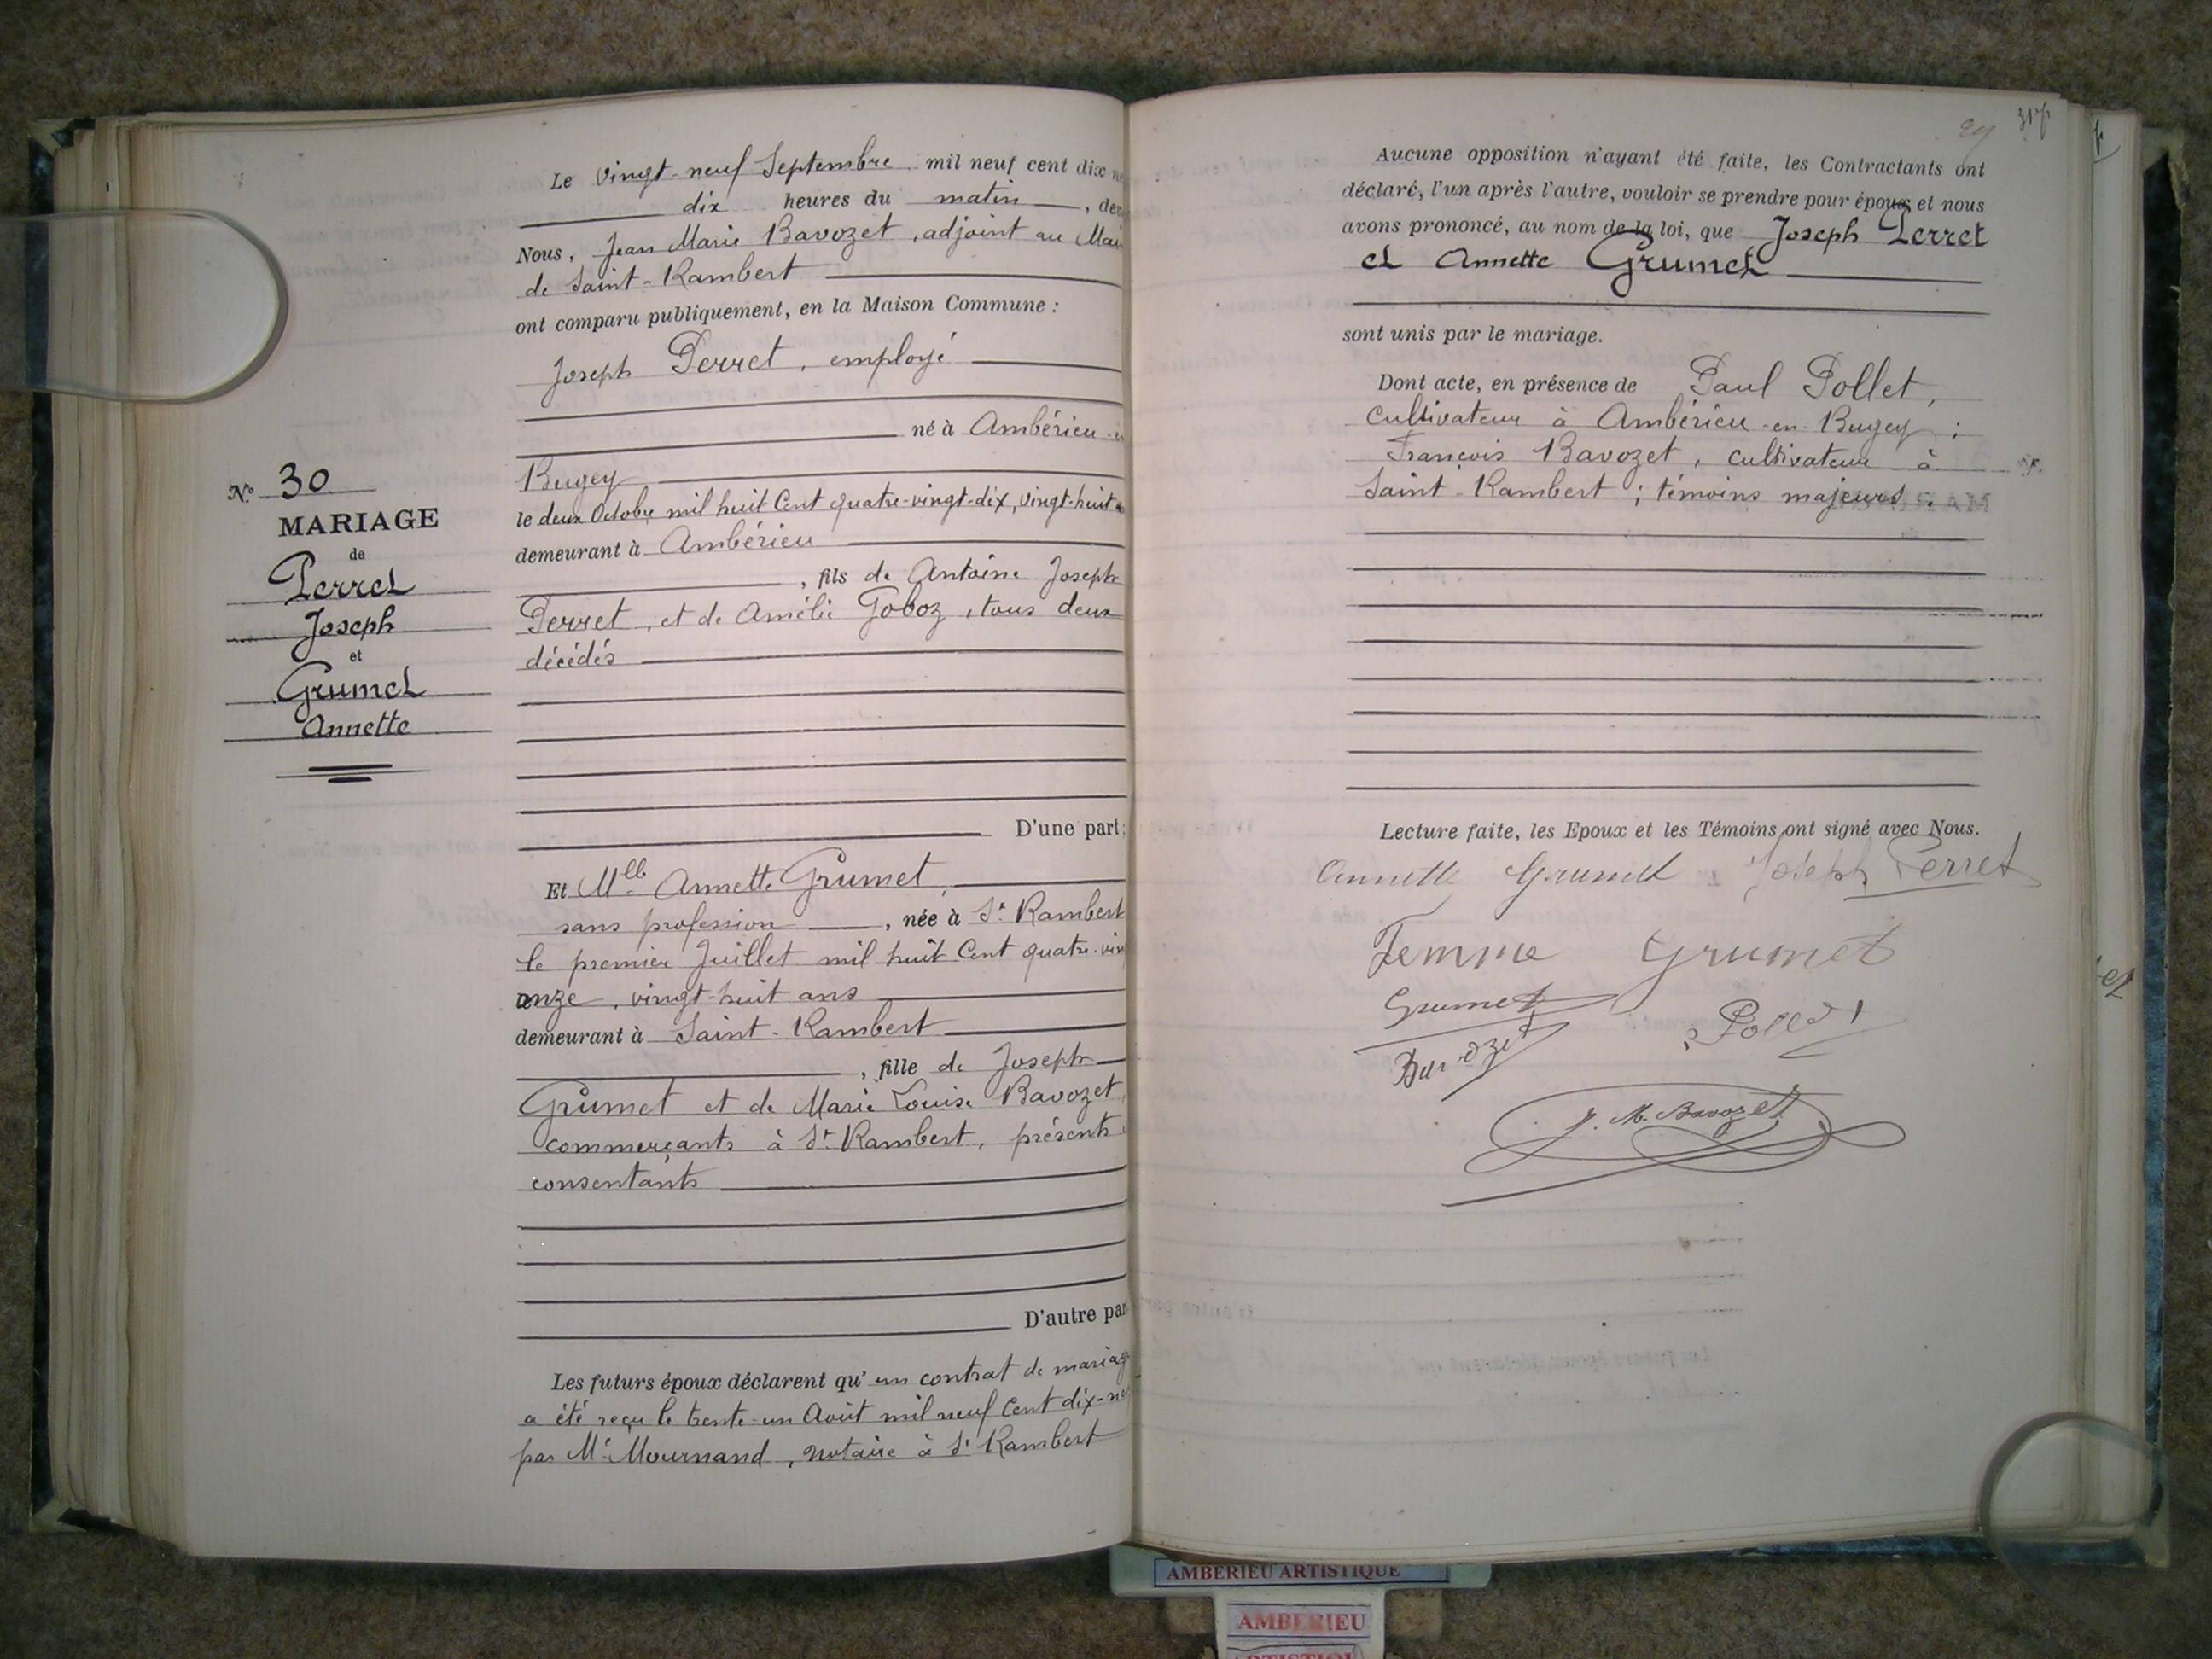 Nº 30
MARIAGE
de
Perret
Joseph
et
Grumet
Annette
Le vingt-neuf Septembre mil neuf cent dix
dix heures du matin
Nous, Jean Marie Bavozet, adjoint au
de Saint-Rambert
ont comparu publiquement, en la Maison Commune :
Joseph Perret, employé
né à Ambérieu-
Bugey
le deux Octobre mil huit Cent quatre-vingt-dix, vingt-huit
demeurant à Ambérieu
, fils de Antoine Joseph
Perret, et de Amélie Goboz, tous deux
décédés
D'une part;
Et Mlle Annette Grumet,
sans profession, née à St Rambert
le premier Juillet mil huit Cent quatre-
onze, vingt-huit ans
demeurant à Saint-Rambert
, fille de Joseph
Grumet et de Marie Louise Bavozet,
commerçants à St Rambert, présents
consentants
D'autre par
Les futurs époux déclarent qu'un contrat de mariag
a été reçu le trente-un Août mil neuf Cent dix-
par Me Mournand, notaire à St Rambert
317
Aucune opposition n'ayant été faite, les Contractants ont
déclaré, l'un après l'autre, vouloir se prendre pour époux et nous
avons prononcé, au nom de la loi, que Joseph Perret
et Annette Grumet
sont unis par le mariage.
Dont acte, en présence de Paul Pollet,
cultivateur à Ambérieu-en-Bugey ;
François Bavozet, cultivateur à
Saint-Rambert ; témoins majeurs.
Lecture faite, les Epoux et les Témoins ont signé avec Nous.
Annette Grumet Joseph Perret
Femme Grumet
Grumet
Pollet
Bavozet
J. M. Bavozet
AMBERIEU ARTISTIQUE
AMBERIEU